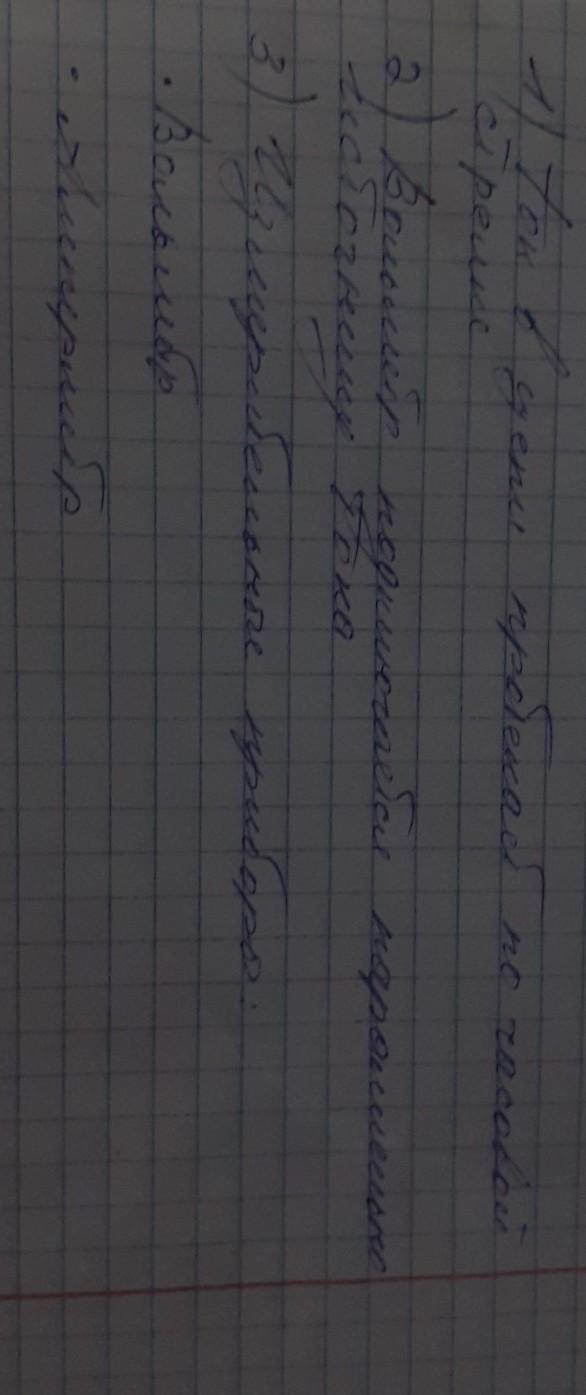 1) Ток в цепи протекает по часовой
стрелке
2) Вольтметр подключается параллельно
источнику тока
3) Измерительные приборы:
· Вольтметр
· Амперметр